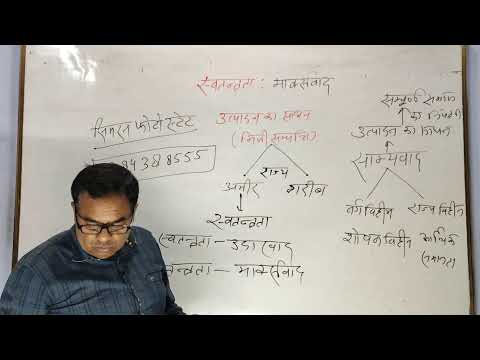 स्वतन्त्रता : मार्क्सवाद
सिमरन फोटो स्टेट
388555
उत्पादन का साधन
(निजी सम्पत्ति)
राज्य
अमीर गरीब
स्वतन्त्रता
स्वतन्त्रता - उदारवाद
तन्त्रता - मार्क्सवाद
सम्पूर्ण
का
उत्पादन का
साम्यवाद
वर्ग विहीन राज्य विहीन
शोषन विहीन आर्थिक
समानता